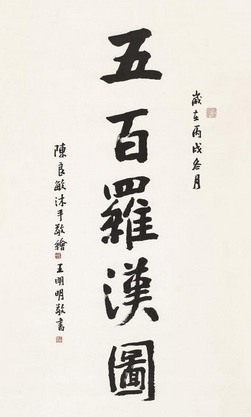 歲在丙戌冬月
五百羅漢圖
陳良敏沐手敬繪
王明明敬書